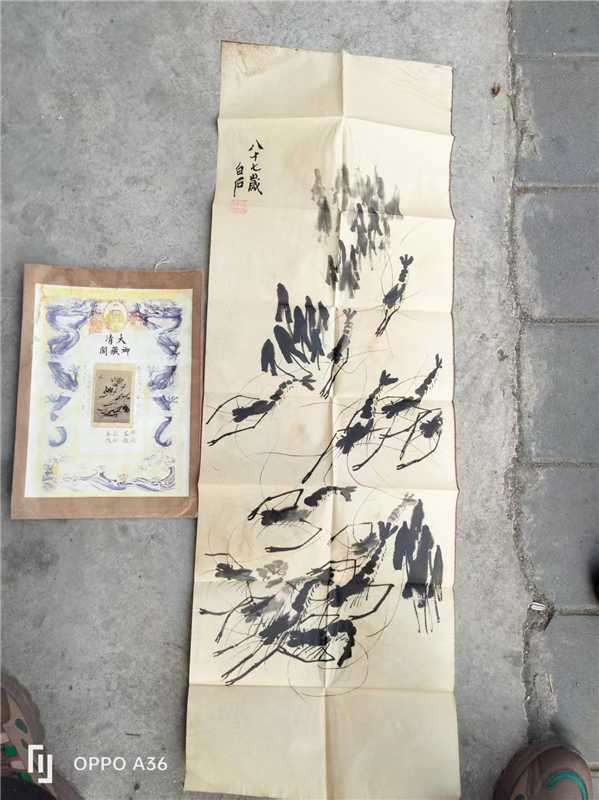 八十七歲
白石
大清
御藏閣
OPPO A36